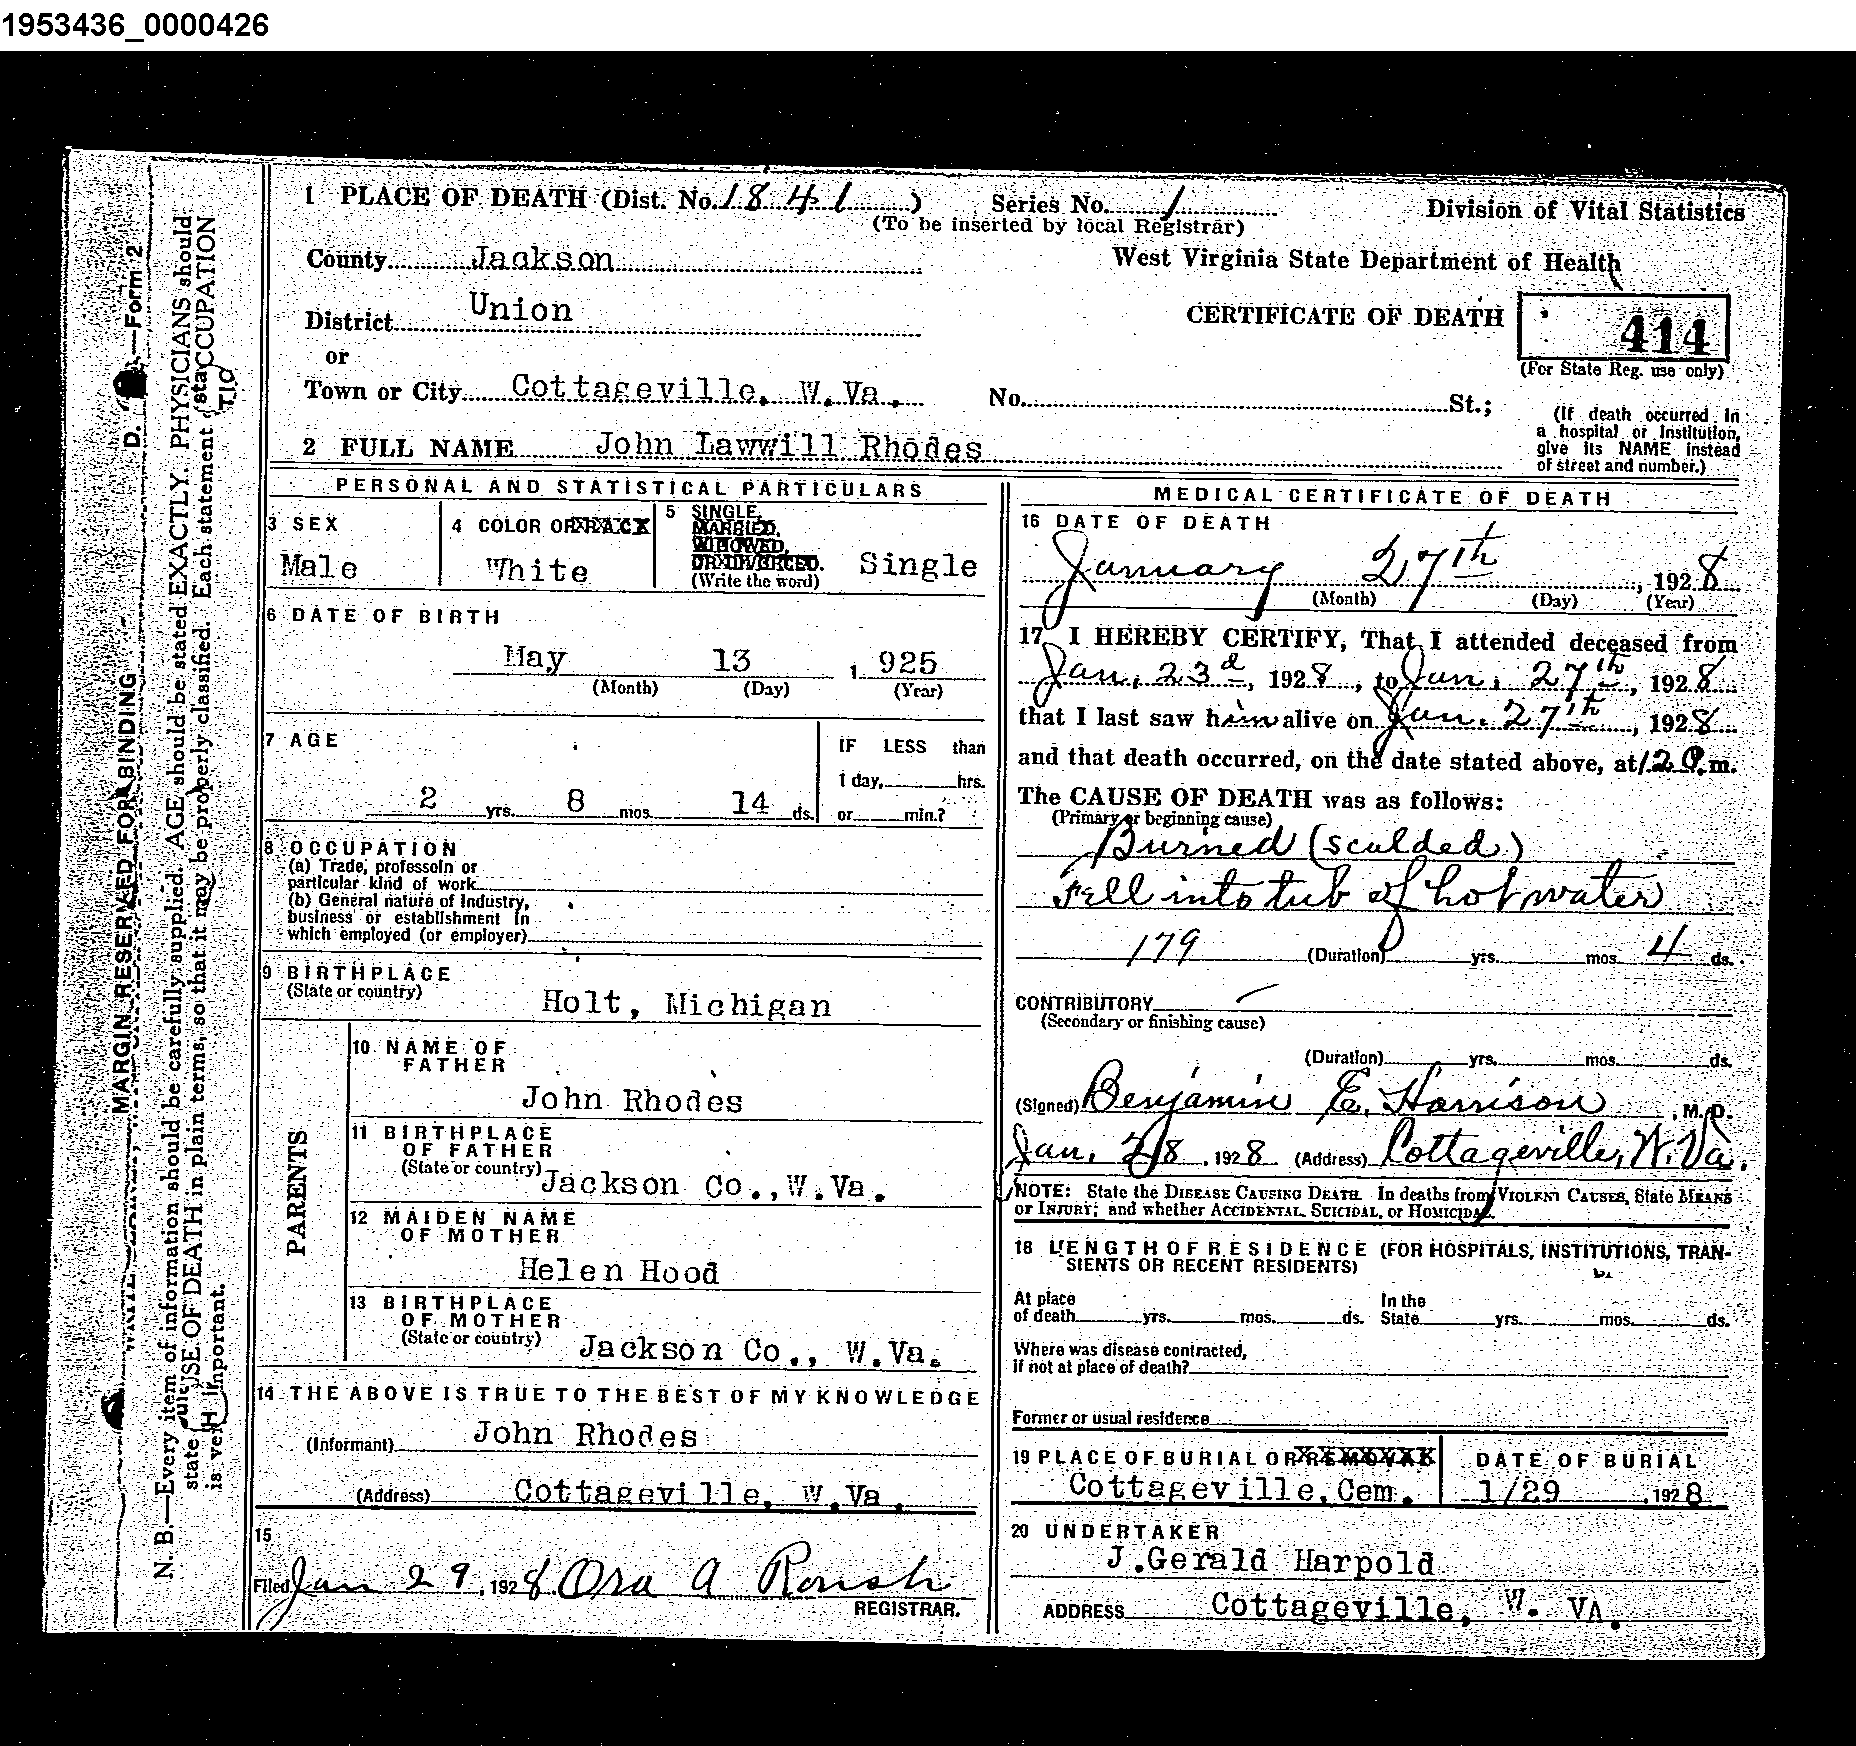 1953436_0000426
1 PLACE OF DEATH (Dist. No. 1841)
Series No. 1
(To be inserted by local Registrar)
Division of Vital Statistics
County Jackson
West Virginia State Department of Health
District Union
CERTIFICATE OF DEATH
414
(For State Reg. use only)
or
Town or City Cottageville, W.Va.
No. St.;
(If death occurred in
a hospital or institution,
give its NAME instead
of street and number.)
2 FULL NAME John Lawwill Rhodes
PERSONAL AND STATISTICAL PARTICULARS
3 SEX
Male
4 COLOR OR RACE
White
5 SINGLE,
MARRIED,
WIDOWED,
OR DIVORCED.
(Write the word)
Single
6 DATE OF BIRTH
May 13 , 925
(Month) (Day) (Year)
7 AGE
2 yrs. 8 mos. 14 ds.
IF LESS than
1 day, hrs.
or min.?
8 OCCUPATION
(a) Trade, professoin or
particular kind of work
(b) General nature of Industry,
business or establishment in
which employed (or employer)
9 BIRTHPLACE
(State or country)
Holt, Michigan
PARENTS
10 NAME OF
FATHER
John Rhodes
11 BIRTHPLACE
OF FATHER
(State or country) Jackson Co.,W.Va.
12 MAIDEN NAME
OF MOTHER
Helen Hood
13 BIRTHPLACE
OF MOTHER
(State or country) Jackson Co., W.Va.
14 THE ABOVE IS TRUE TO THE BEST OF MY KNOWLEDGE
(Informant) John Rhodes
(Address) Cottageville, W.Va.
15
Filed Jan 29, 1928 Ora A Roush
REGISTRAR.
MEDICAL CERTIFICATE OF DEATH
16 DATE OF DEATH
January 27th, 1928
(Month) (Day) (Year)
17 I HEREBY CERTIFY, That I attended deceased from
Jan. 23d, 1928, to Jan. 27th, 1928
that I last saw him alive on Jan. 27th, 1928
and that death occurred, on the date stated above, at m.
The CAUSE OF DEATH was as follows:
(Primary or beginning cause)
Burned (scalded)
Fell into tub of hot water
179 (Duration) yrs. mos. 4 ds.
CONTRIBUTORY
(Secondary or finishing cause)
(Duration) yrs. mos. ds.
(Signed) Benjamin E. Harrison, M.D.
Jan. 28, 1928 (Address) Cottageville, W.Va.
NOTE: State the DISEASE CAUSING DEATH. In deaths from VIOLENT CAUSES, State MEANS
OF INJURY; and whether ACCIDENTAL, SUICIDAL, or HOMICIDAL.
18 LENGTH OF RESIDENCE (FOR HOSPITALS, INSTITUTIONS, TRAN-
SIENTS OR RECENT RESIDENTS)
At place
of death yrs. mos. ds.
In the
State yrs. mos. ds.
Where was disease contracted,
if not at place of death?
Former or usual residence
19 PLACE OF BURIAL OR REMOVAL
Cottageville,Cem.
DATE OF BURIAL
1/29, 1928
20 UNDERTAKER
J.Gerald Harpold
ADDRESS Cottageville, W. VA.
D. —Form 2
MARGIN RESERVED FOR BINDING
N. B.—Every item of information should be carefully supplied. AGE should be stated EXACTLY. PHYSICIANS should
state CAUSE OF DEATH in plain terms, so that it may be properly classified. Each statement of OCCUPATION
is very important.